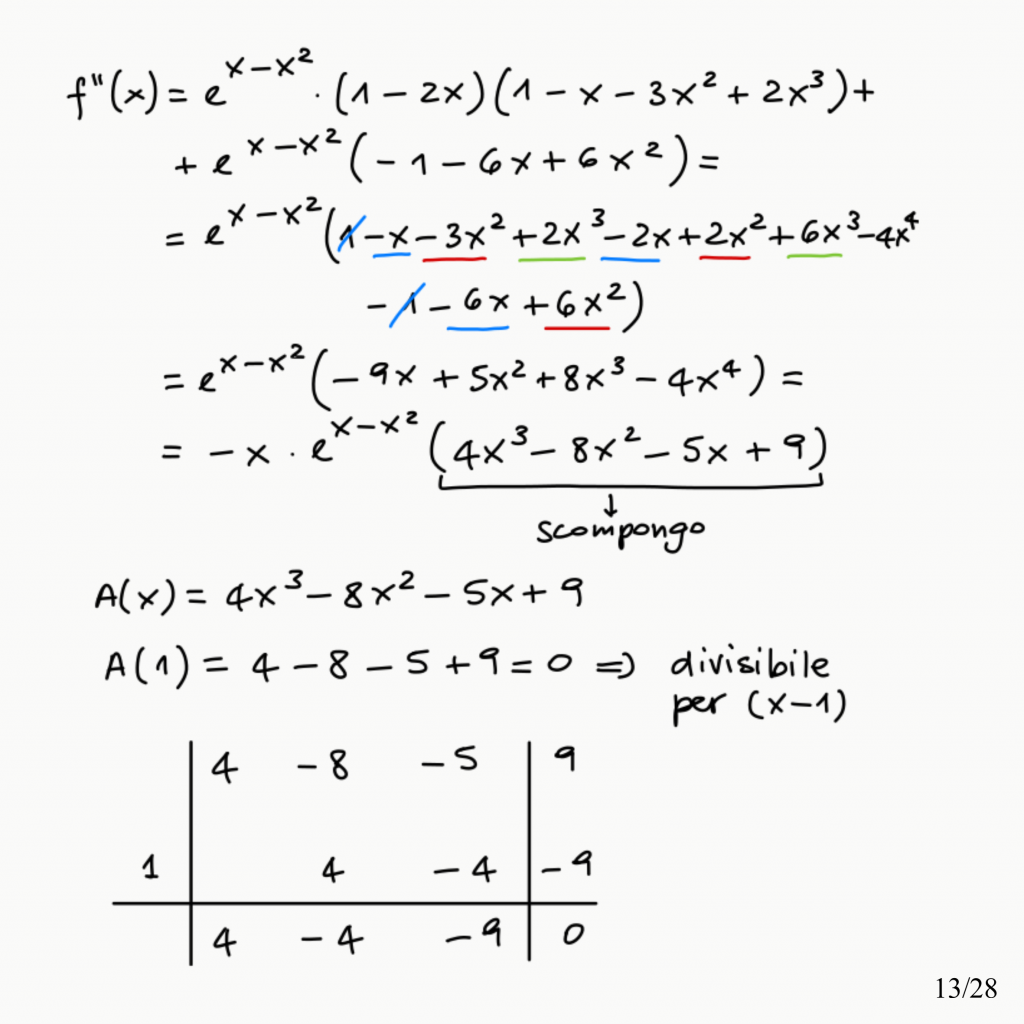 f''(x) = e^{x-x²} · (1 - 2x)(1 - x - 3x² + 2x³) +
+ e^{x-x²} (-1 - 6x + 6x²) =
= e^{x-x²} (1 - x - 3x² + 2x³ - 2x + 2x² + 6x³ - 4x⁴
- 1 - 6x + 6x²)
= e^{x-x²} (-9x + 5x² + 8x³ - 4x⁴) =
= -x · e^{x-x²} (4x³ - 8x² - 5x + 9)
↓
scompongo
A(x) = 4x³ - 8x² - 5x + 9
A(1) = 4 - 8 - 5 + 9 = 0 ⇒ divisibile
per (x-1)
4 -8 -5 9
1 4 -4 -9
4 -4 -9 0
13/28